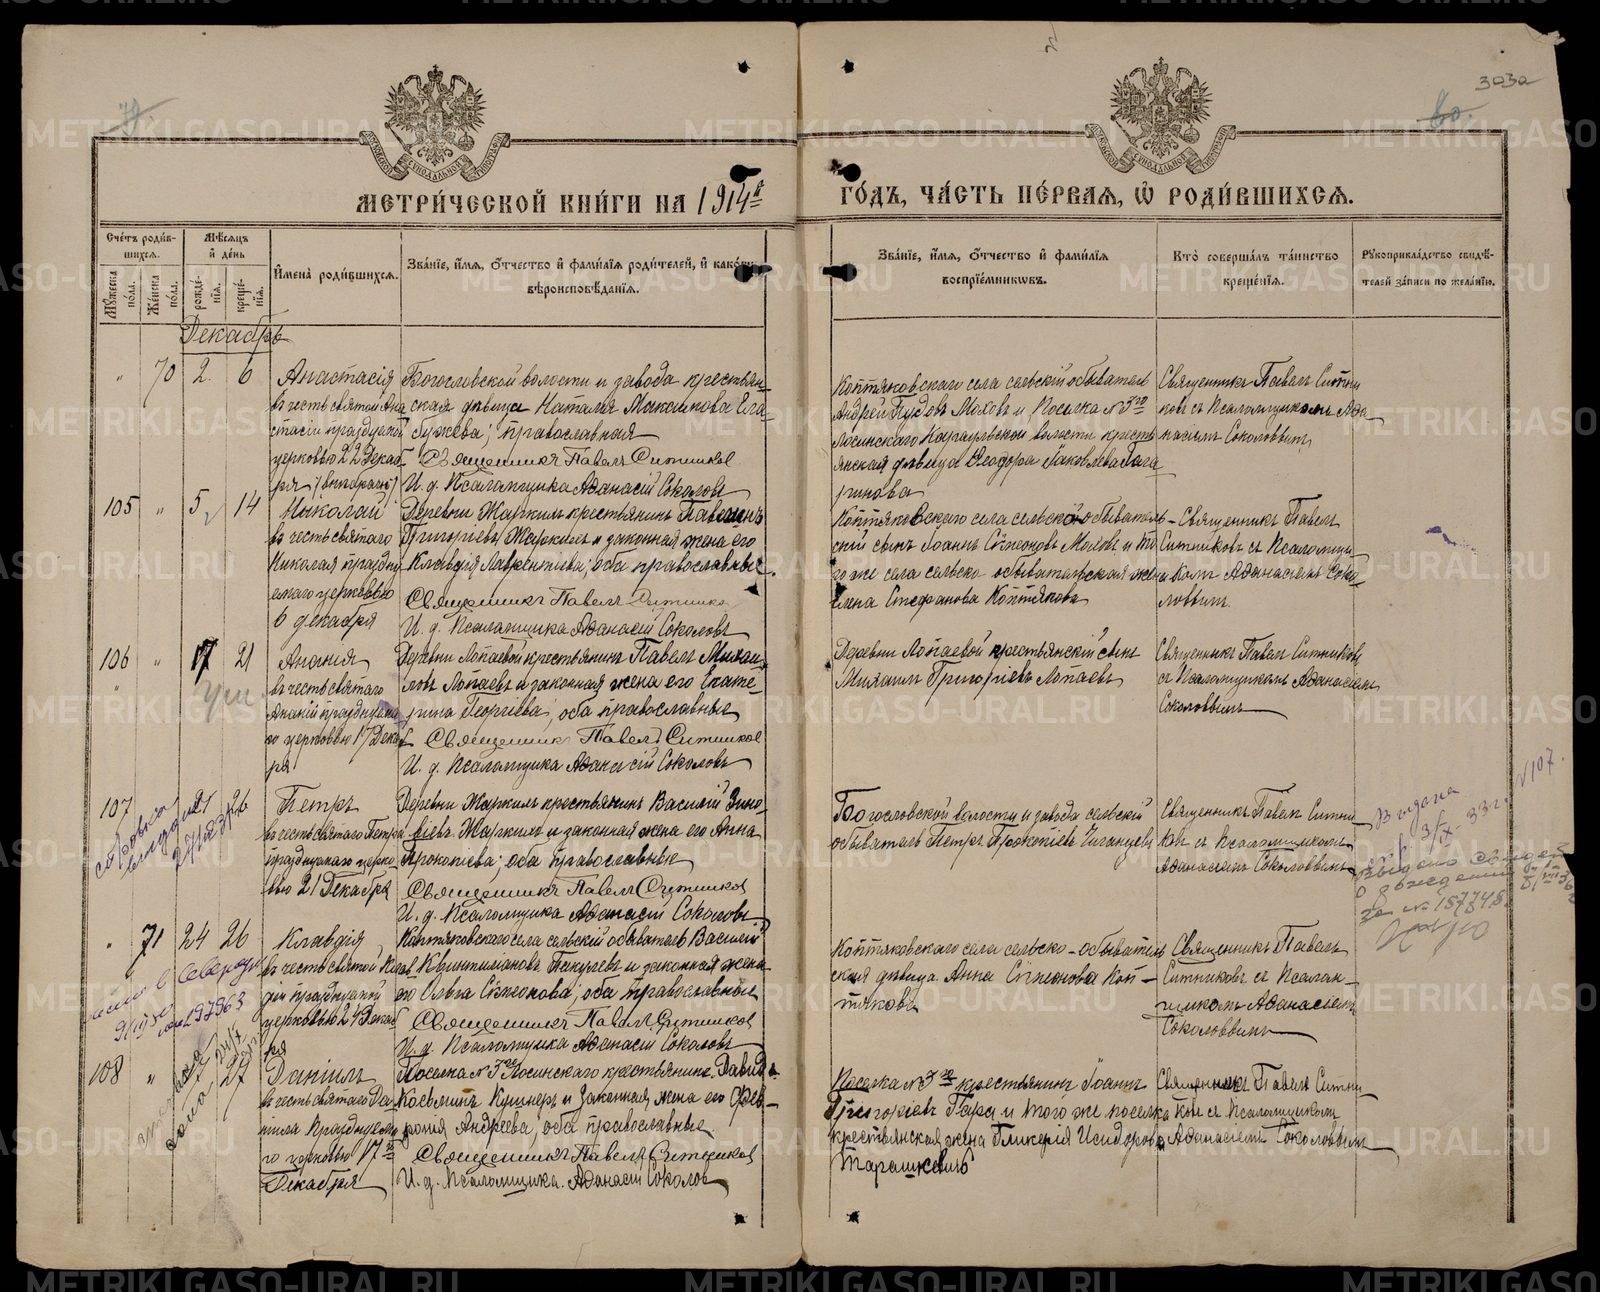 METRIKI.GASO-URAL.RU
303а
80.
МОСКОВСКОЙ СИНОДАЛЬНОЙ ТИПОГРАФІИ
МЕТРИ́ЧЕСКОЙ КНИ́ГИ НА 1914й
ГО́ДЪ, ЧА́СТЬ ПЕ́РВАЯ, Ѡ РОДИ́ВШИХСЯ.
Счетъ роди́в-
шихся.
Мѣсяцъ
и день
Мужеска пола.
Же́нска пола.
рожде-
нія.
креще-
нія.
И́мена роди́вшихся.
Зва́ніе, и́мя, о́тчество и фами́лія роди́телей, и како́го
вѣроисповѣданія.
Зва́ніе, и́мя, о́тчество и фами́лія
воспріе́мниковъ.
Кто̀ соверша́лъ та́инство
креще́нія.
Рукоприкла́дство свидѣ-
телей за́писи по жела́нію.
Декабрь
" 70 2. 6
Анастасія
въ честь святой Ана
стасіи празднуемой
церковью 22 Декаб
ря
Богословской волости и завода крестьян-
ская дѣвица Наталья Максимова
православная
Священникъ Павелъ Ситников
И. д. Псаломщика Аѳанасій Соколовъ
Коптяковскаго села сельскій обыватель
Андрей Пудовъ Моховъ и Поселка № 3го
Лосинскаго Караульской волости кресть
янская дѣвица Ѳеодора Яковлева
Священникъ Павелъ Ситни
ковъ съ Псаломщикомъ Аѳа-
насіемъ Соколовымъ
105 " 5 14
Николай
въ честь святаго
Николая праздну
емаго церковью
6 декабря
Деревни Жаркиль крестьянинъ Павелъ
Григоріевъ Жаркиль и законная жена его
Клавдія Лаврентіева, оба православные.
Священникъ Павелъ Ситников
И. д. Псаломщика Аѳанасій Соколовъ
Коптяковскаго села сельско-обыватель-
скій сынъ Іоаннъ Сѵмеоновъ Моховъ и то
го же села сельско-обывательская жена
Стефанова Коптякова
Священникъ Павелъ
Ситниковъ съ Псаломщи
комъ Аѳанасіемъ Соко-
ловымъ.
106 " 17 21
Ананія
въ честь святаго
Ананіи празднуема
го церковью 17 Декаб
ря
Деревни Лопаевой крестьянинъ Павелъ Михаи
ловъ Лопаевъ и законная жена его Екате-
рина Георгіева, оба православные
Священникъ Павелъ Ситников
И. д. Псаломщика Аѳанасій Соколовъ
Деревни Лопаевой крестьянскій сынъ
Михаилъ Григоріевъ Лопаевъ
Священникъ Павелъ Ситниковъ
съ Псаломщикомъ Аѳанасіемъ
Соколовымъ
107 21 26
Петръ
въ честь святаго Петра
празднуемаго церко
вью 21 Декабря
Деревни Жаркиль крестьянинъ Василій Зино-
віевъ Жаркиль и законная жена его Анна
Прокопіева; оба православные
Священникъ Павелъ Ситников
И. д. Псаломщика Аѳанасій Соколовъ
Богословской волости и завода сельскій
обыватель Петръ Прокопіевъ
Священникъ Павелъ Ситни
ковъ съ Псаломщикомъ
Аѳанасіемъ Соколовымъ
№107.
Выдана
3/IX-33г.
Выдано
за № 157748.
" 71 24 26
Клавдія
въ честь святой Клав
діи празднуемой
церковью 24 Декаб
ря
Коптяковскаго села сельскій обыватель Василій
Квинтиліановъ и законная жена
его Ольга Сѵмеонова, оба православные
Священникъ Павелъ Ситников
И. д. Псаломщика Аѳанасій Соколовъ
Коптяковскаго села сельско-обыватель
ская дѣвица Анна Сѵмеонова Коп-
тякова
Священникъ Павелъ
Ситниковъ съ Псалом-
щикомъ Аѳанасіемъ
Соколовымъ
108 " 27
Даніилъ
въ честь святаго Да-
ніила празднуемо
го церковью 17го
Декабря
Поселка № 3го Лосинскаго крестьянинъ Давидъ
Косьминъ Кушнеръ и законная жена его Фев-
ронія Андреева, оба православные.
Священникъ Павелъ Ситников
И. д. Псаломщика Аѳанасій Соколов
Поселка № 3го крестьянинъ Іоаннъ
Григоріевъ и того же поселка
крестьянская жена Гликерія Исидорова
Тарашкевичъ
Священникъ Павелъ Ситни
ковъ съ Псаломщикомъ
Аѳанасіемъ Соколовымъ